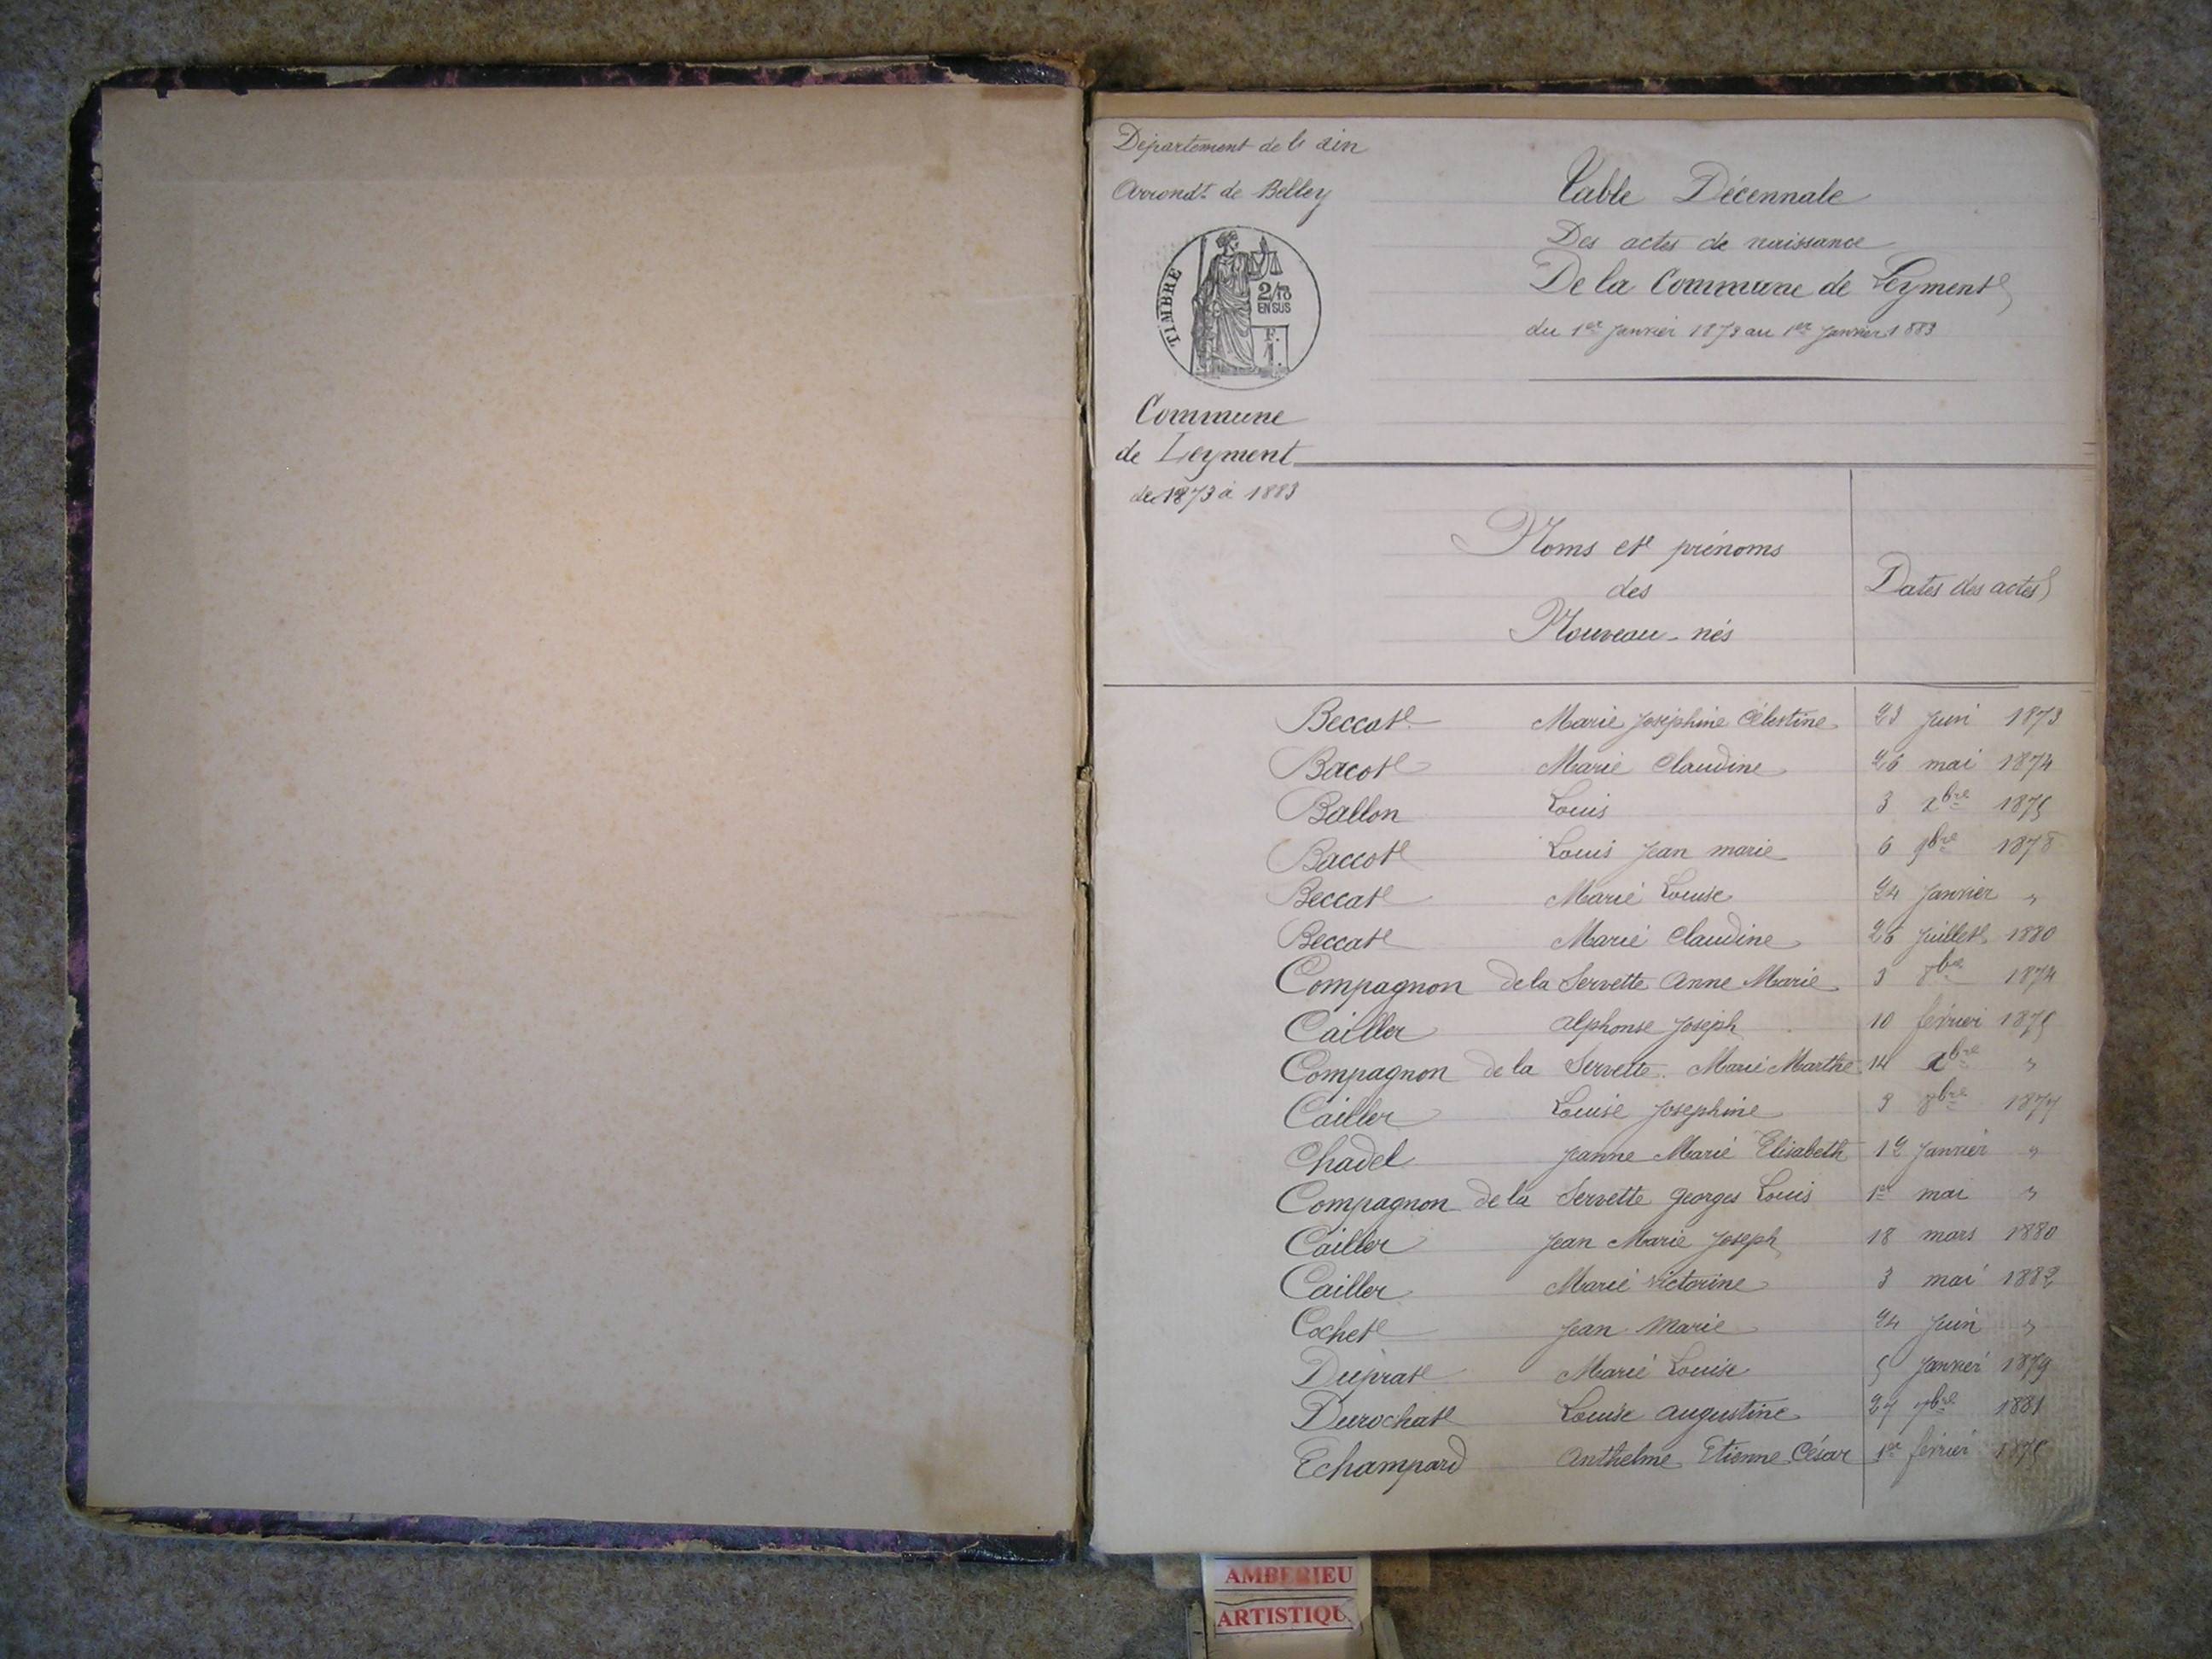 Département de l'ain
Arrondt. de Belley
TIMBRE
2/10
EN SUS
F.
1.
Commune
de Leyment
de 1873 à 1883
Table Décennale
Des actes de naissance
De la Commune de Leyment
du 1er Janvier 1873 au 1er Janvier 1883
Noms et prénoms
des
Nouveau-nés
Dates des actes
Beccat Marie Joséphine Célestine 23 Juin 1873
Bacot Marie Claudine 26 mai 1874
Ballon Louis 3 xbre 1875
Baccot Louis Jean marie 6 9bre 1878
Beccat Marie Louise 24 Janvier "
Beccat Marie Claudine 26 Juillet 1880
Compagnon de la Servette Anne Marie 3 8bre 1874
Cailler alphonse Joseph 10 février 1875
Compagnon de la Servette. Marie Marthe 14 xbre "
Cailler Louise Josephine 9 8bre 1877
Chadel Jeanne Marie Elisabeth 12 Janvier "
Compagnon de la Servette Georges Louis 1er mai "
Cailler Jean Marie Joseph 18 mars 1880
Cailler Marie victorine 3 mai 1882
Cochet Jean Marie 24 Juin "
Duprat Marie Louise 5 Janvier 1879
Durochat Louise augustine 27 7bre 1881
Echampard Anthelme Etienne César 1er février
AMBERIEU
ARTISTIQU